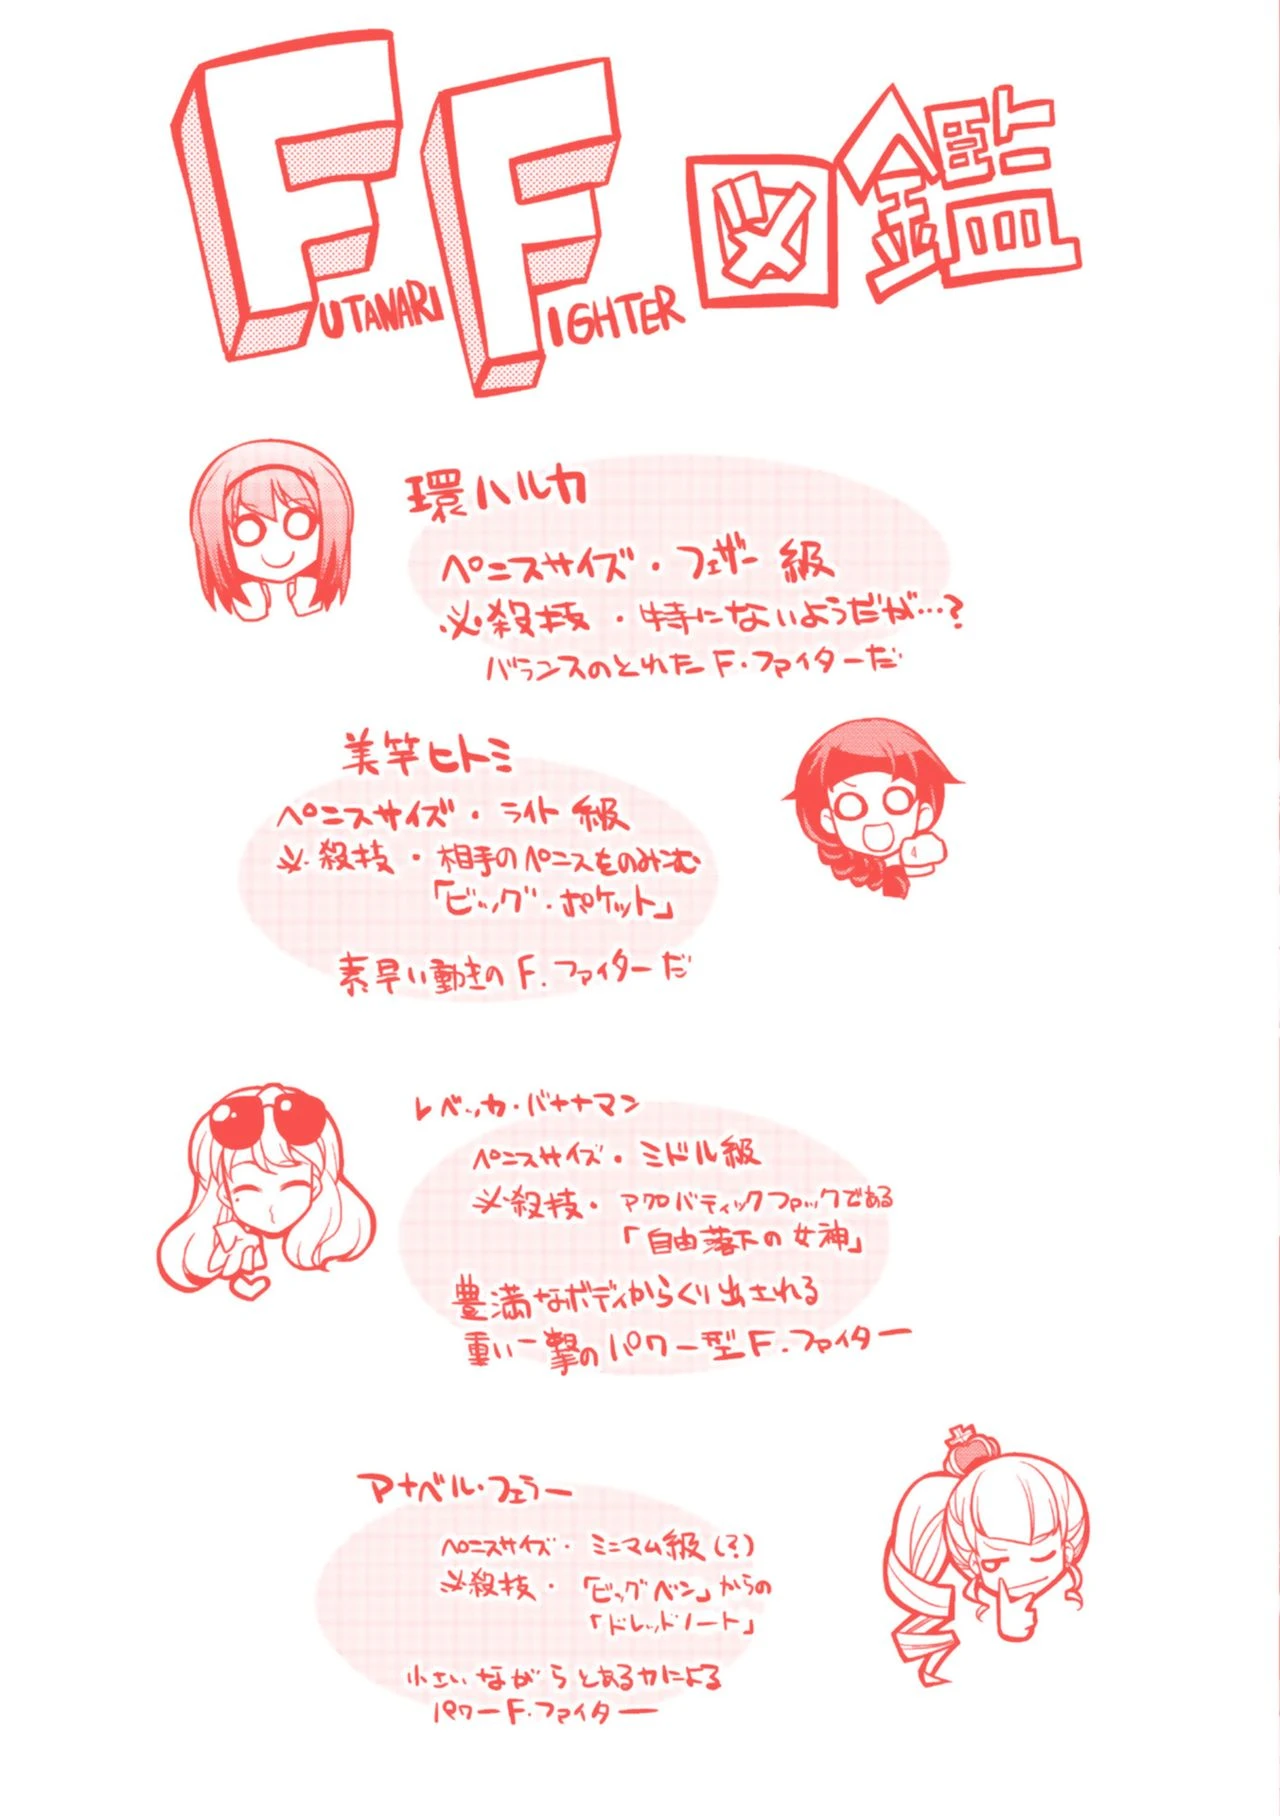 FUTANARI FIGHTER 図鑑
環ハルカ
ペニスサイズ・フェザー級
必殺技・特にないようだが…?
バランスのとれたF.ファイターだ
美竿ヒトミ
ペニスサイズ・ライト級
必殺技・相手のペニスをのみこむ
「ビッグ・ポケット」
素早い動きのF.ファイターだ
4
レベッカ・バナナマン
ペニスサイズ・ミドル級
必殺技・アクロバティックファックである
「自由落下の女神」
豊満なボディからくり出される
重い一撃のパワー型F.ファイター
アナベル・フェラー
ペニスサイズ・ミニマム級(?)
必殺技・「ビッグベン」からの
「ドレッドノート」
小さいながらとある力による
パワーF.ファイター